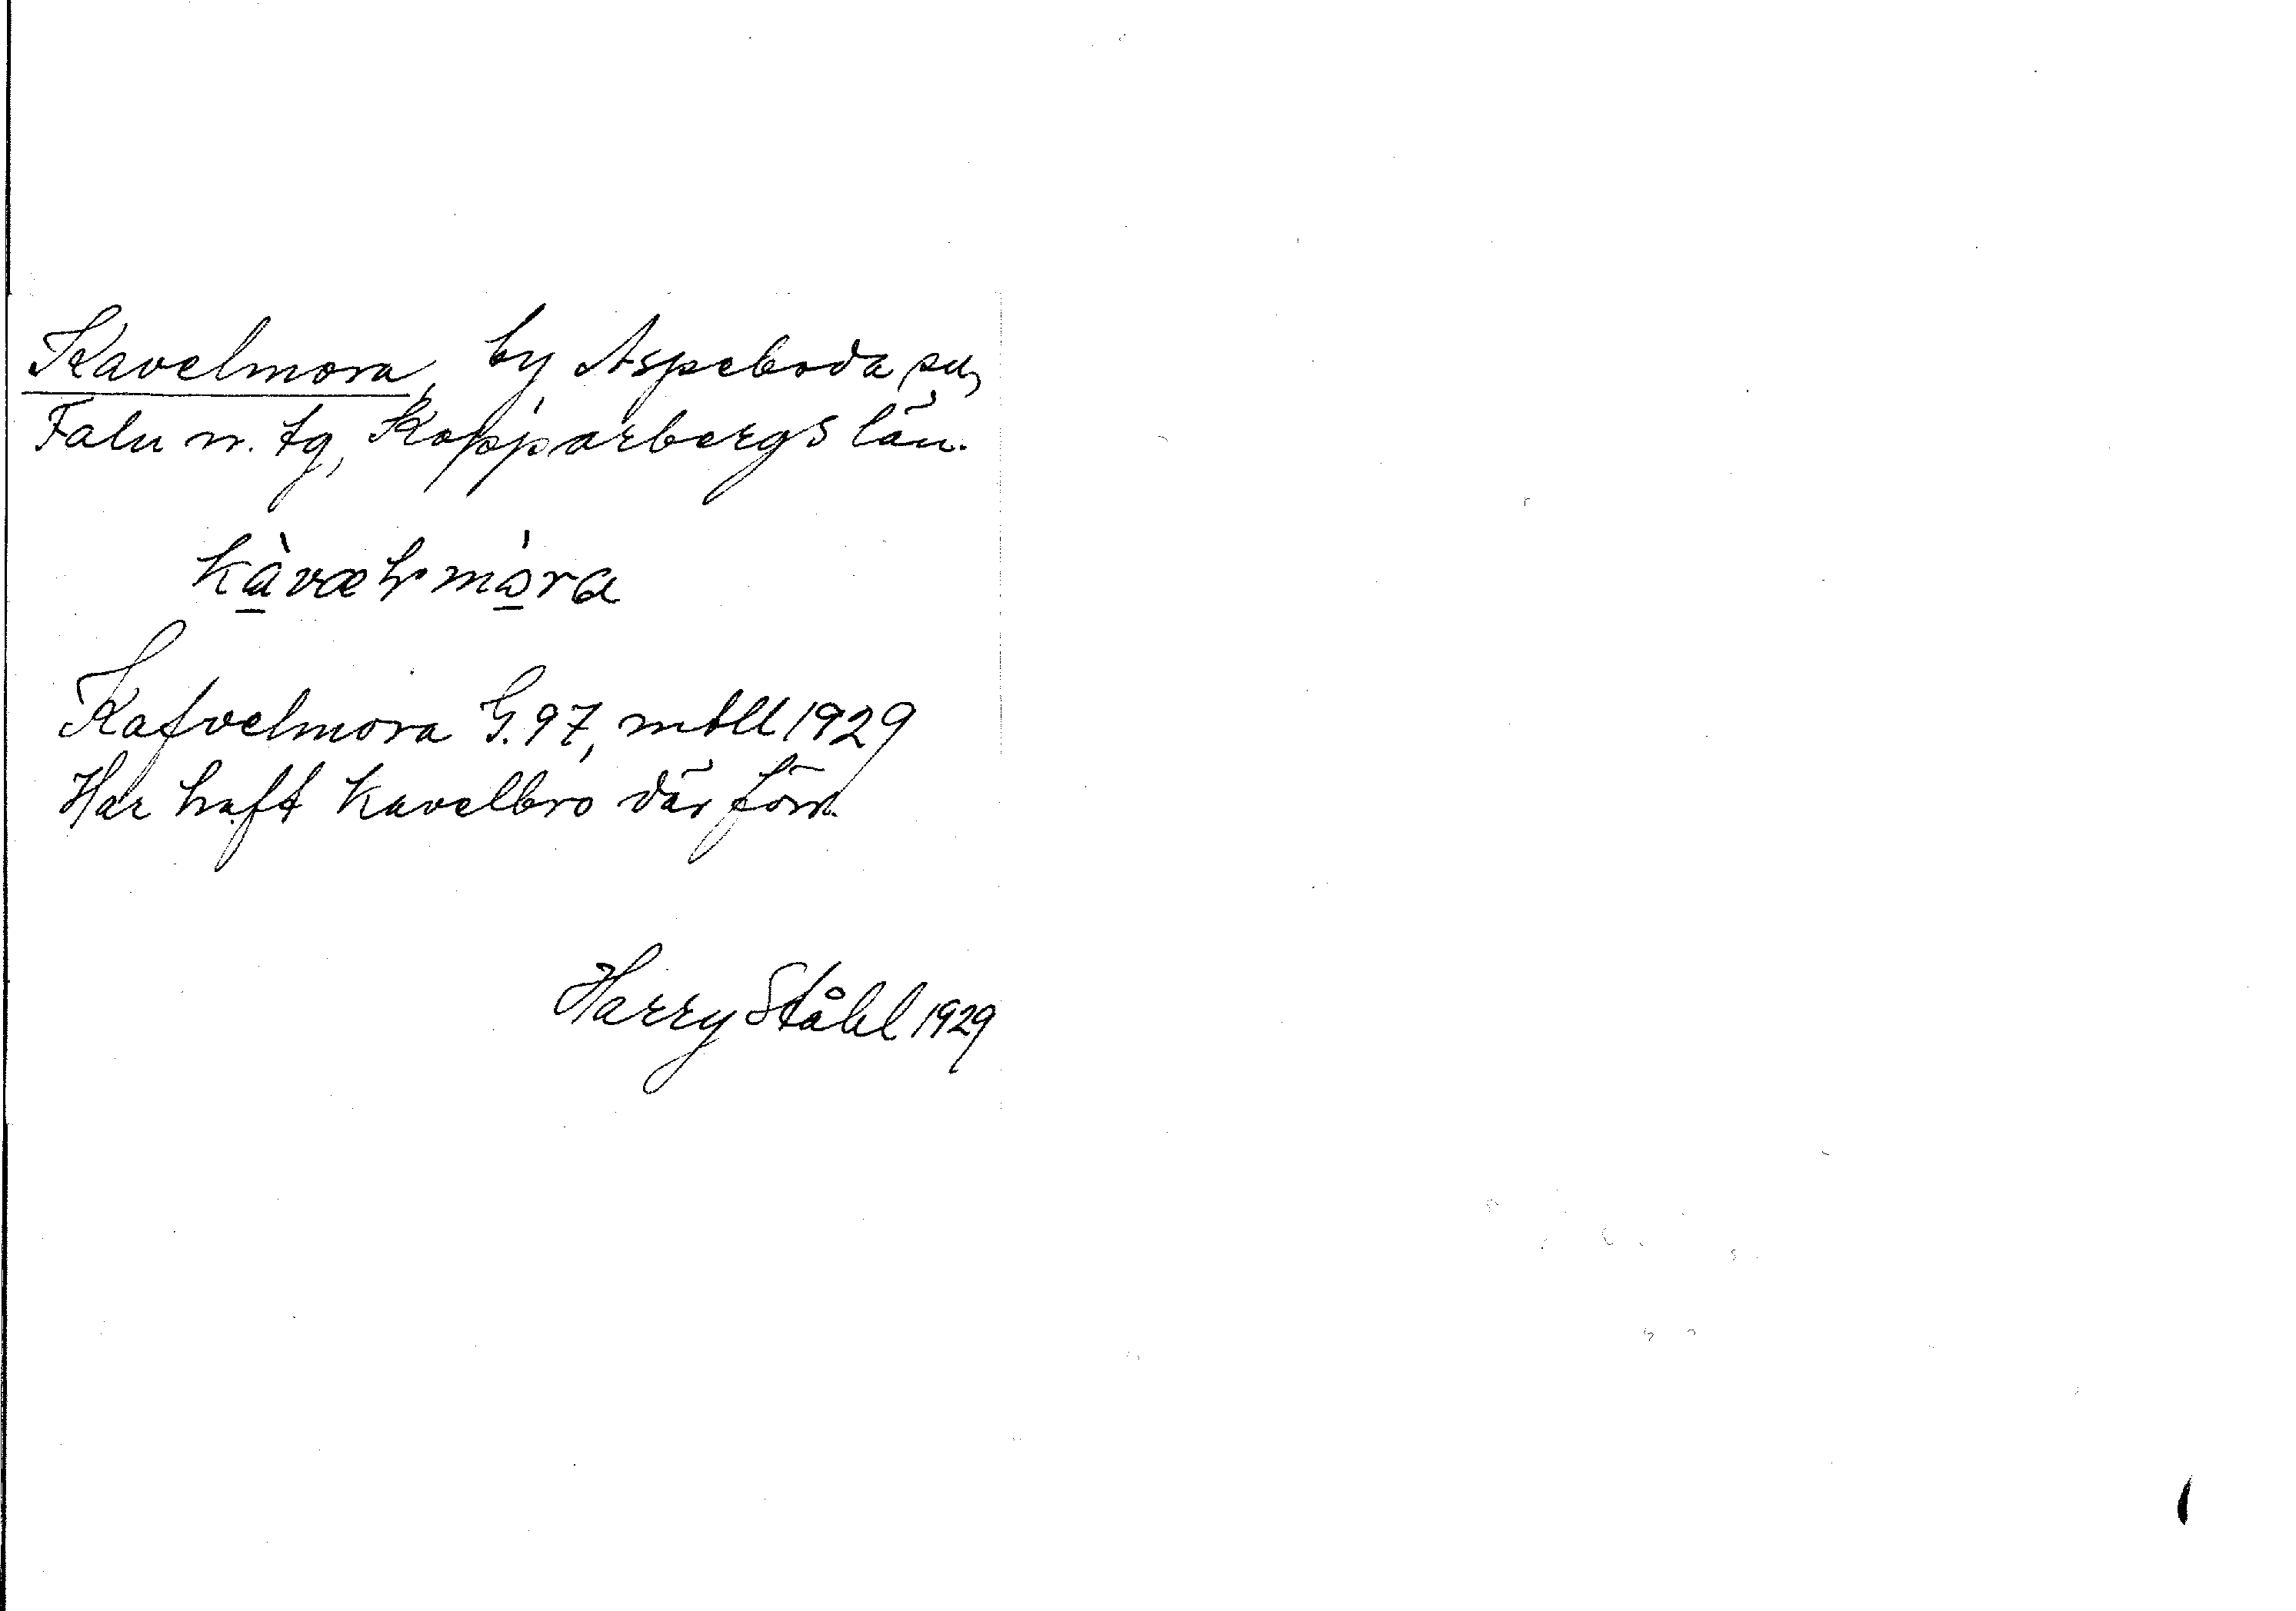 Kavelmora, by Aspeboda sn,
Falu n. tg, Kopparbergs län.
kàvæl mòra
Kafvelmora G.97, mtll 1929
Har haft kavelbro där förr.
Harry Ståhl 1929